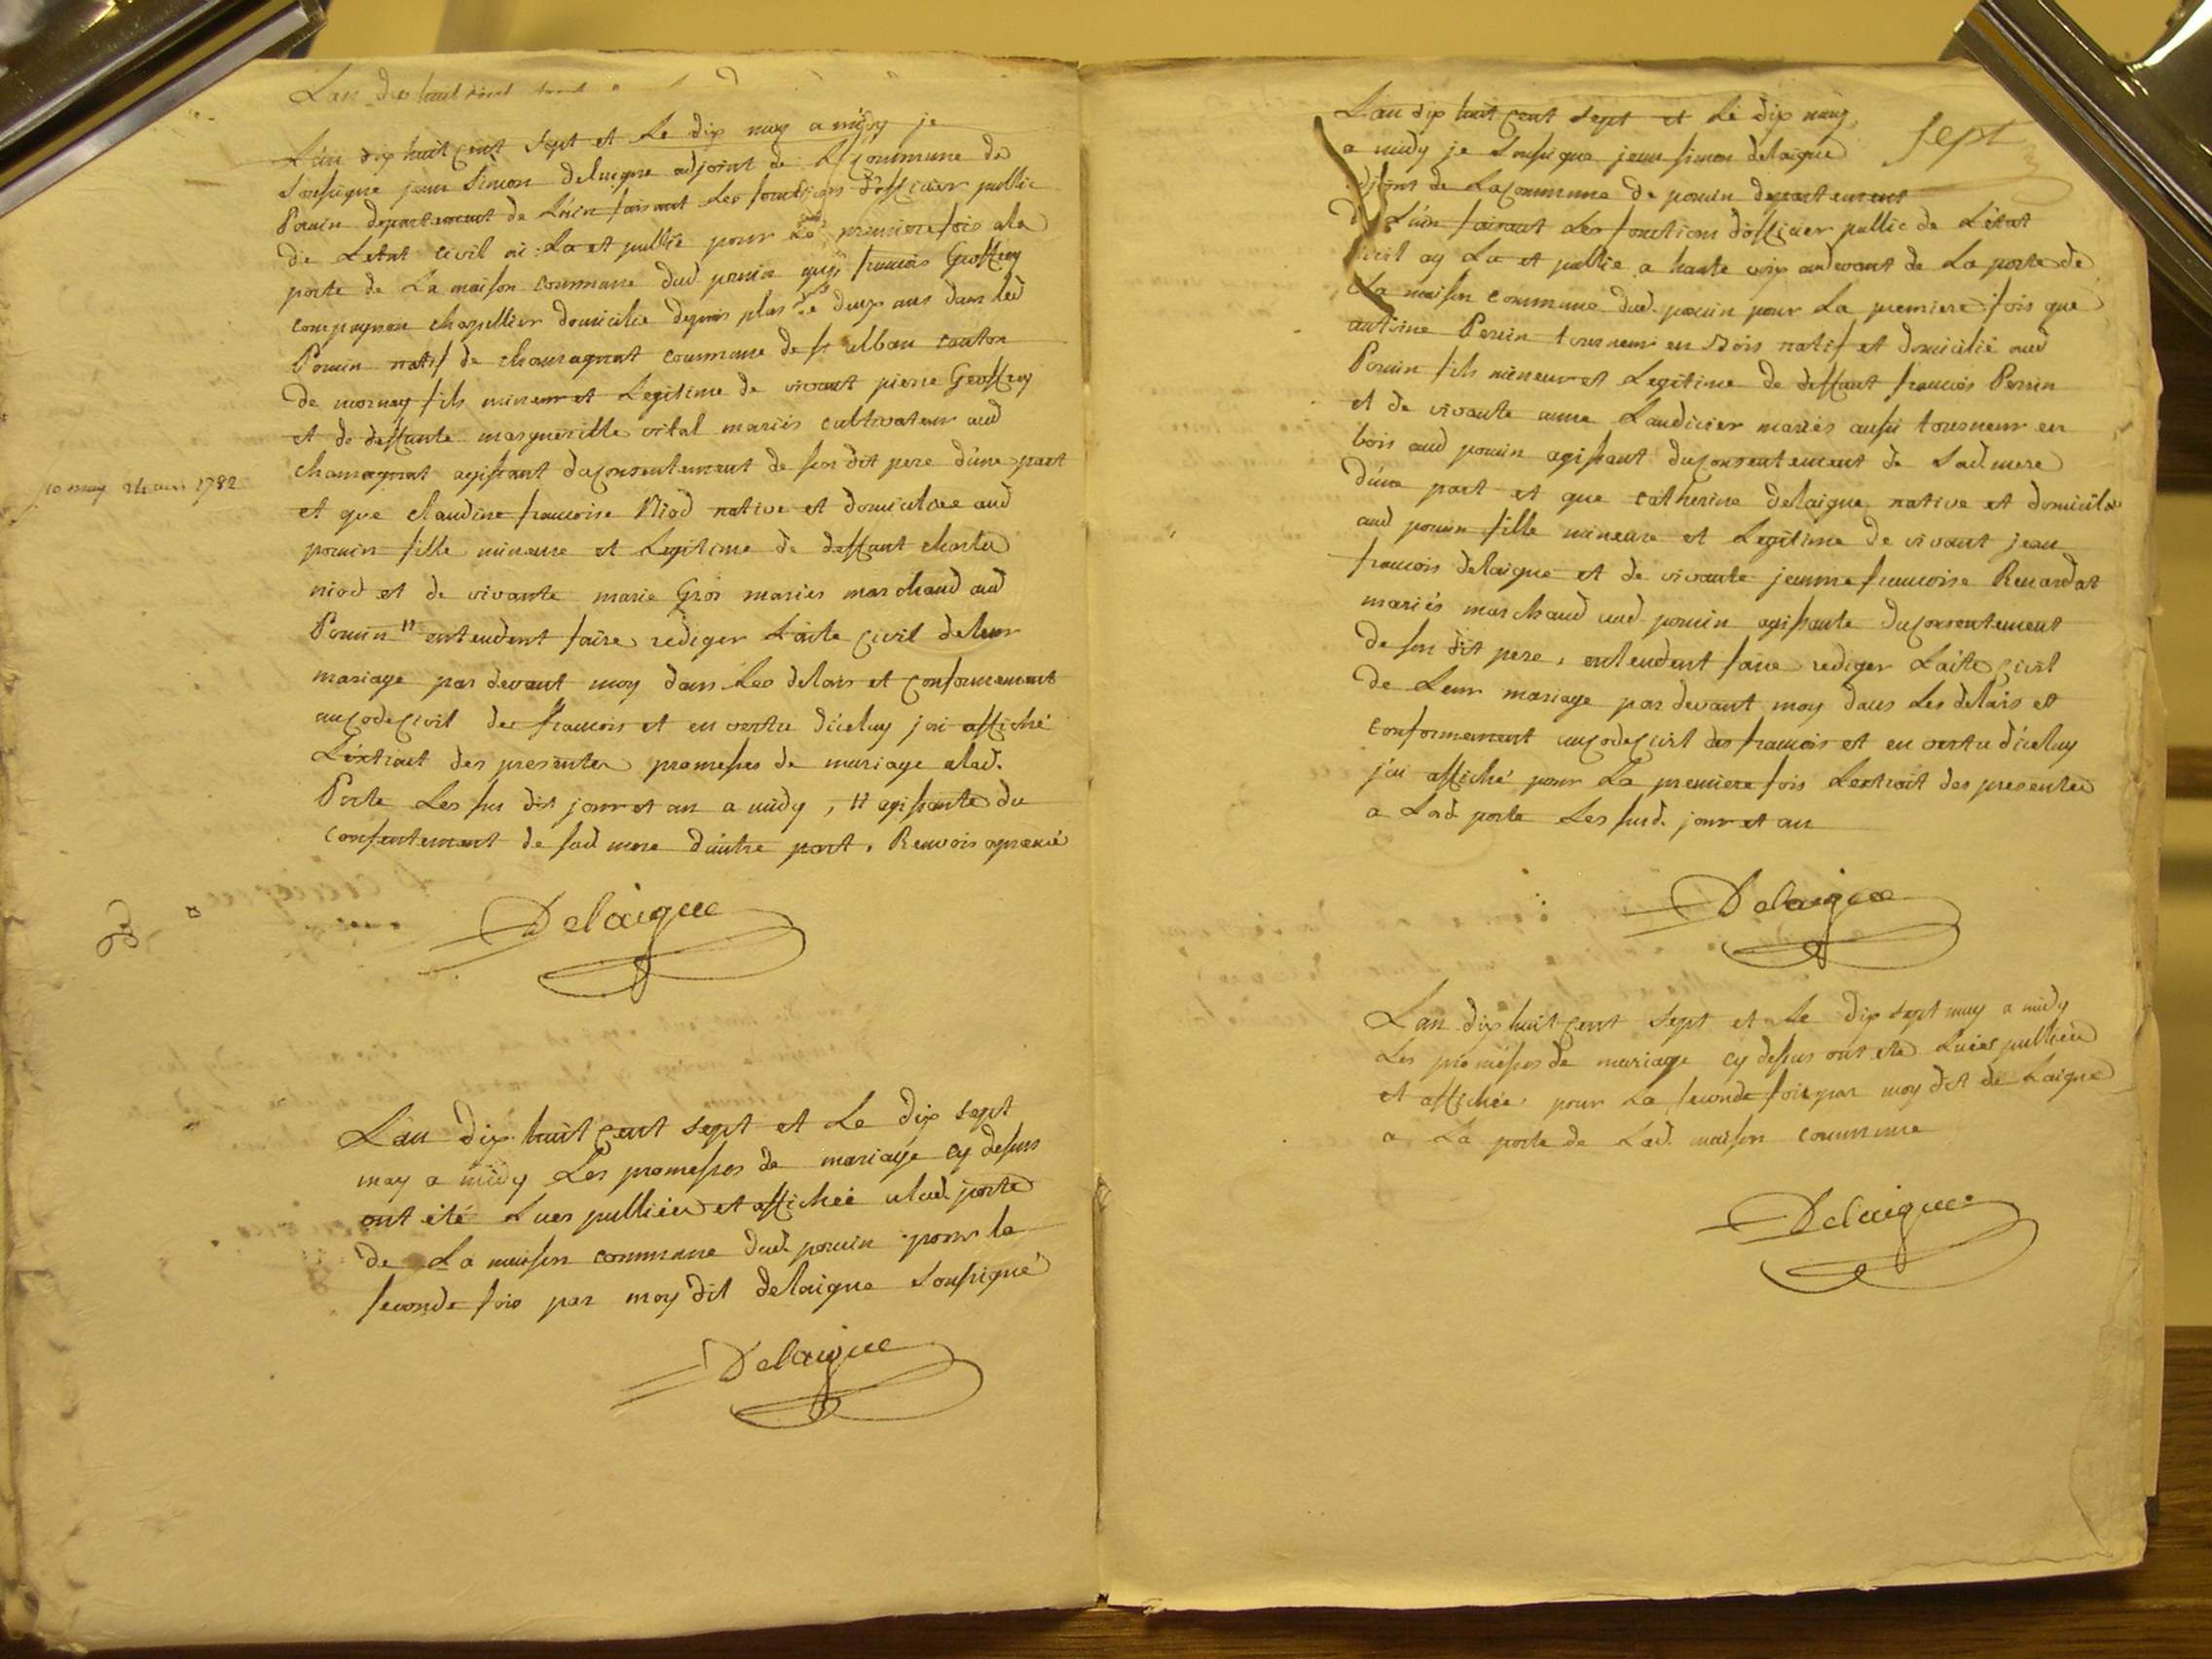 L'an dix huit cent
L'an dix huit cent sept et Le dix may a midy je
Soussigne jean Simon delaigne adjoint de La commune de
Poncin departement de L'ain faisant Les fonctions d'officier public
de L'etat civil ai Lu et publié pour La premiere fois a la
porte de La maison commune dud poncin que francois Geoffray
compagnon chapellier domicilié depuis plus de deux ans dans led
Poncin natif de chamagnat commune de st alban canton
de mornay fils mineur et Legitime de vivant pierre Geoffray
et de deffunte margueritte vital mariés cultivateur aud
chamagnat agissant du consentement de son dit pere d'une part
10 may 24 ans 1782
et que claudine francoise Niod native et domiciliée aud
poncin fille mineure et Legitime de deffunt charles
niod et de vivante marie Gros mariés marchand aud
Poncin " entendent faire rediger L'acte civil de leur
mariage par devant moy dans Les delais et conformement
au code civil des francois et en vertu d'iceluy j'ai affiché
L'extrait des presentes promesses de mariage a lad.
Porte Les sus dit jour et an a midy, " agissante du
consentement de sad mere d'autre part. Renvois aprouvé
Delaigue
L'an dix huit cent sept et Le dix sept
may a midy Les promesses de mariage cy dessus
ont été Lues publiées et affichée a lad porte
de La maison commune dud. poncin pour la
seconde fois par moy dit delaigue Soussigné
Delaigue
sept
L'an dix huit cent sept et Le dix may
a midy je Soussigne jean simon delaigue
adjoint de La commune de poncin departement
de L'ain faisant Les fonctions d'officier public de L'état
civil ay Lu et publié a haute voix au devant de La porte de
La maison commune dud. poncin pour La premiere fois que
antoine Perrin tourneur en Bois natif et domicilié aud
Poncin fils mineur et Legitime de deffunt francois Perrin
et de vivante anne Laudicier mariés aussi tourneur en
bois aud poncin agissant du consentement de Sad mere
d'une part et que catherine delaigue native et domiciliée
aud poncin fille mineure et Legitime de vivant jean
francois delaigue et de vivante jeanne francoise Renardat
mariés marchand aud. poncin agissante du consentement
de son dit pere, entendent faire rediger L'acte civil
de Leur mariage par devant moy dans Les delais et
conformement au code civil des francois et en vertu d'iceluy
j'ai affiché pour La premiere fois L'extrait des presentes
a Lad. porte Les susd. jour et an
Delaigue
L'an dix huit cent sept et Le dix sept may a midy
Les promesses de mariage cy dessus ont ete Luies publiées
et affichée pour La seconde fois par moy dit de Laigue
a La porte de Lad. maison commune
Delaigue